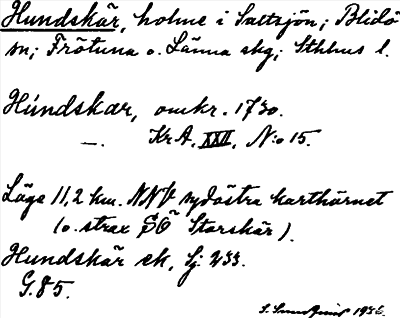 Hundskär, holme i Saltsjön; Blidö
sn; Frötuna o. Länna skg; Sthlms l.
Hundskär, omkr. 1730.
—. Kr A. XXII, N:o 15.
Läge 11,2 km. NNV sydöstra karthörnet
(o. strax SÖ Storskär).
Hundskär ek. Sj. 233.
G. 85.